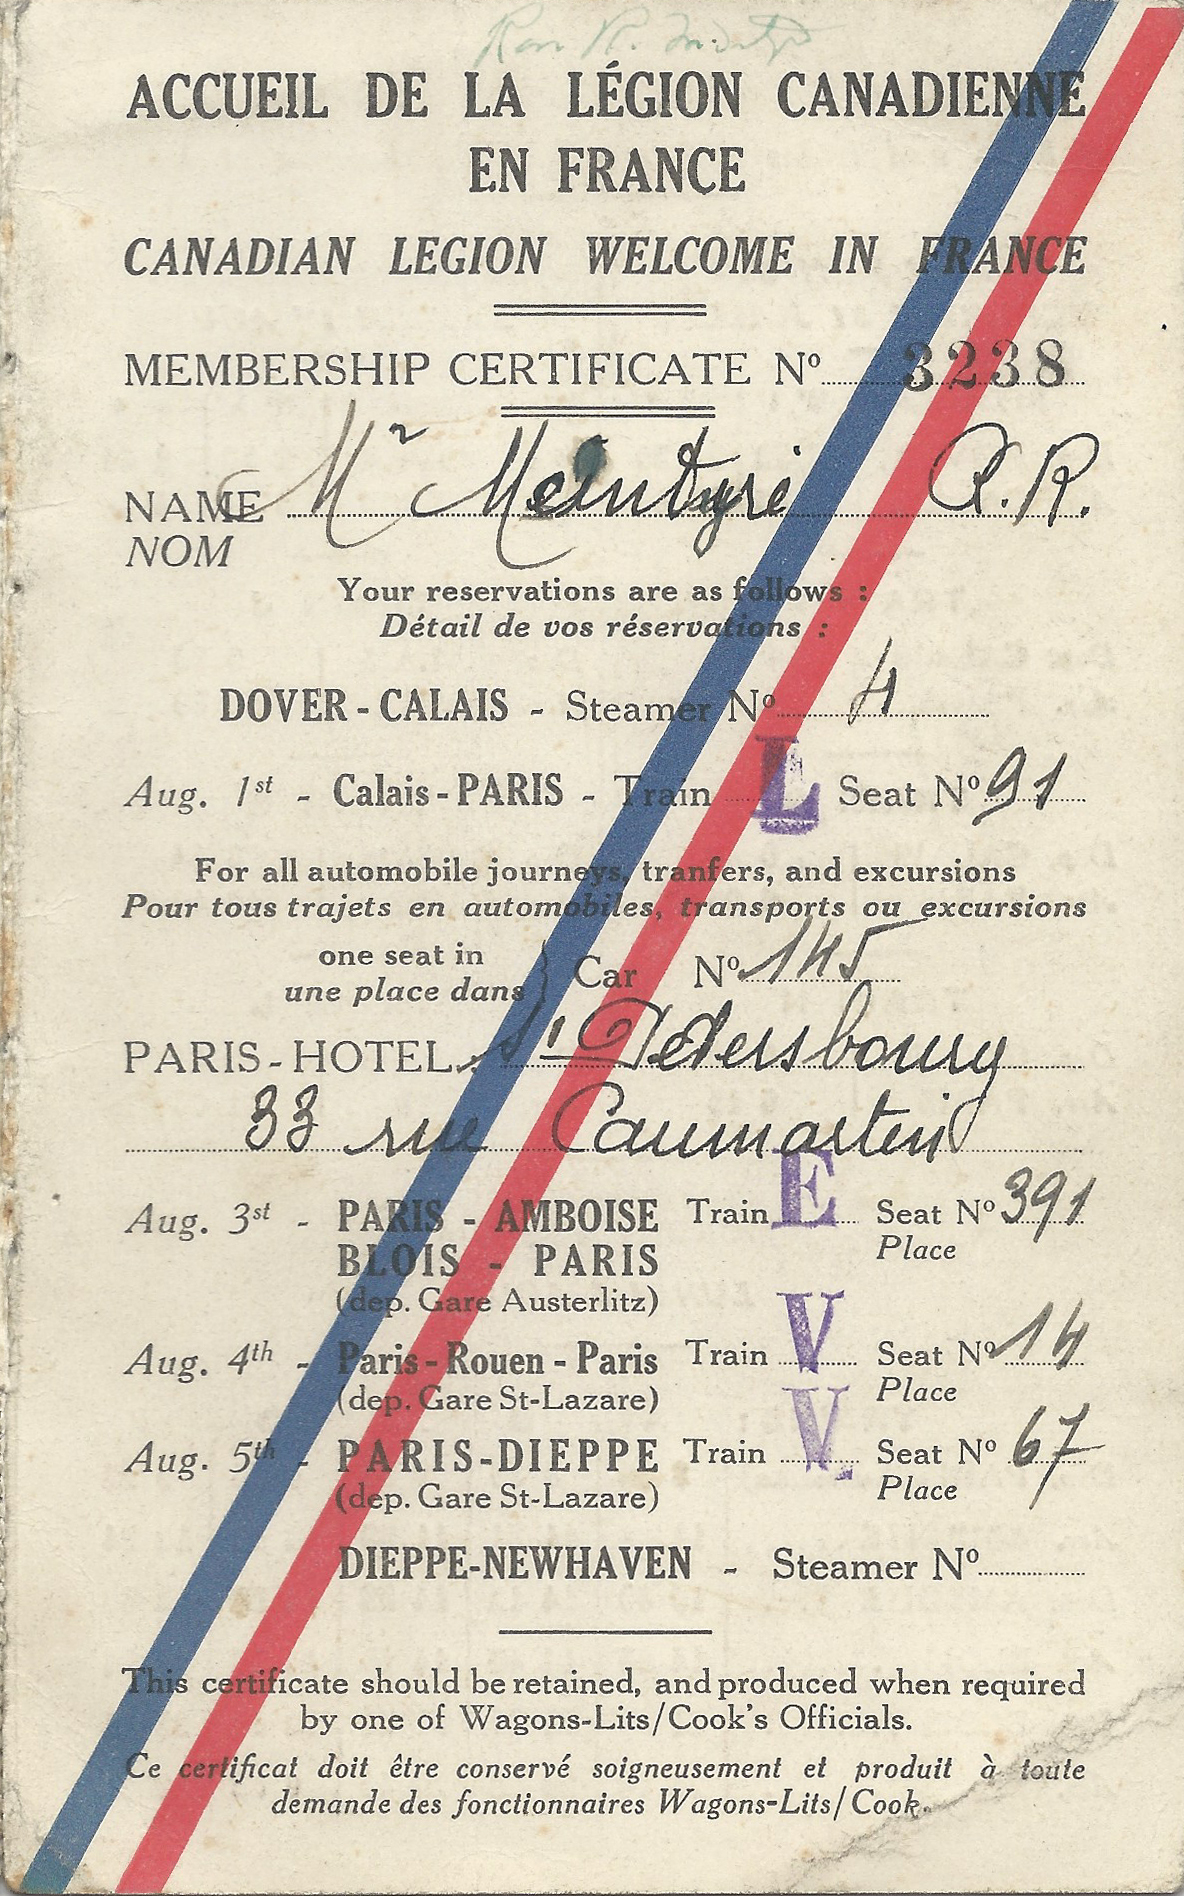 ACCUEIL DE LA LÉGION CANADIENNE
EN FRANCE
CANADIAN LEGION WELCOME IN FRANCE
MEMBERSHIP CERTIFICATE Nº 3238
NAME Mr McIntyre R.R.
NOM
Your reservations are as follows :
Détail de vos réservations :
DOVER - CALAIS - Steamer Nº 4
Aug. 1st - Calais - PARIS - Train L Seat Nº 91
For all automobile journeys, tranfers, and excursions
Pour tous trajets en automobiles, transports ou excursions
one seat in
une place dans } Car Nº 145
PARIS - HOTEL St Petersbourg
33 rue Caumartin
Aug. 3st - PARIS - AMBOISE Train E Seat Nº 391
BLOIS - PARIS Place
(dep. Gare Austerlitz)
Aug. 4th - Paris - Rouen - Paris Train V Seat Nº 14
(dep. Gare St-Lazare) Place
Aug. 5th - PARIS-DIEPPE Train V Seat Nº 67
(dep. Gare St-Lazare) Place
DIEPPE-NEWHAVEN - Steamer Nº
This certificate should be retained, and produced when required
by one of Wagons-Lits/Cook's Officials.
Ce certificat doit être conservé soigneusement et produit à toute
demande des fonctionnaires Wagons-Lits/Cook.